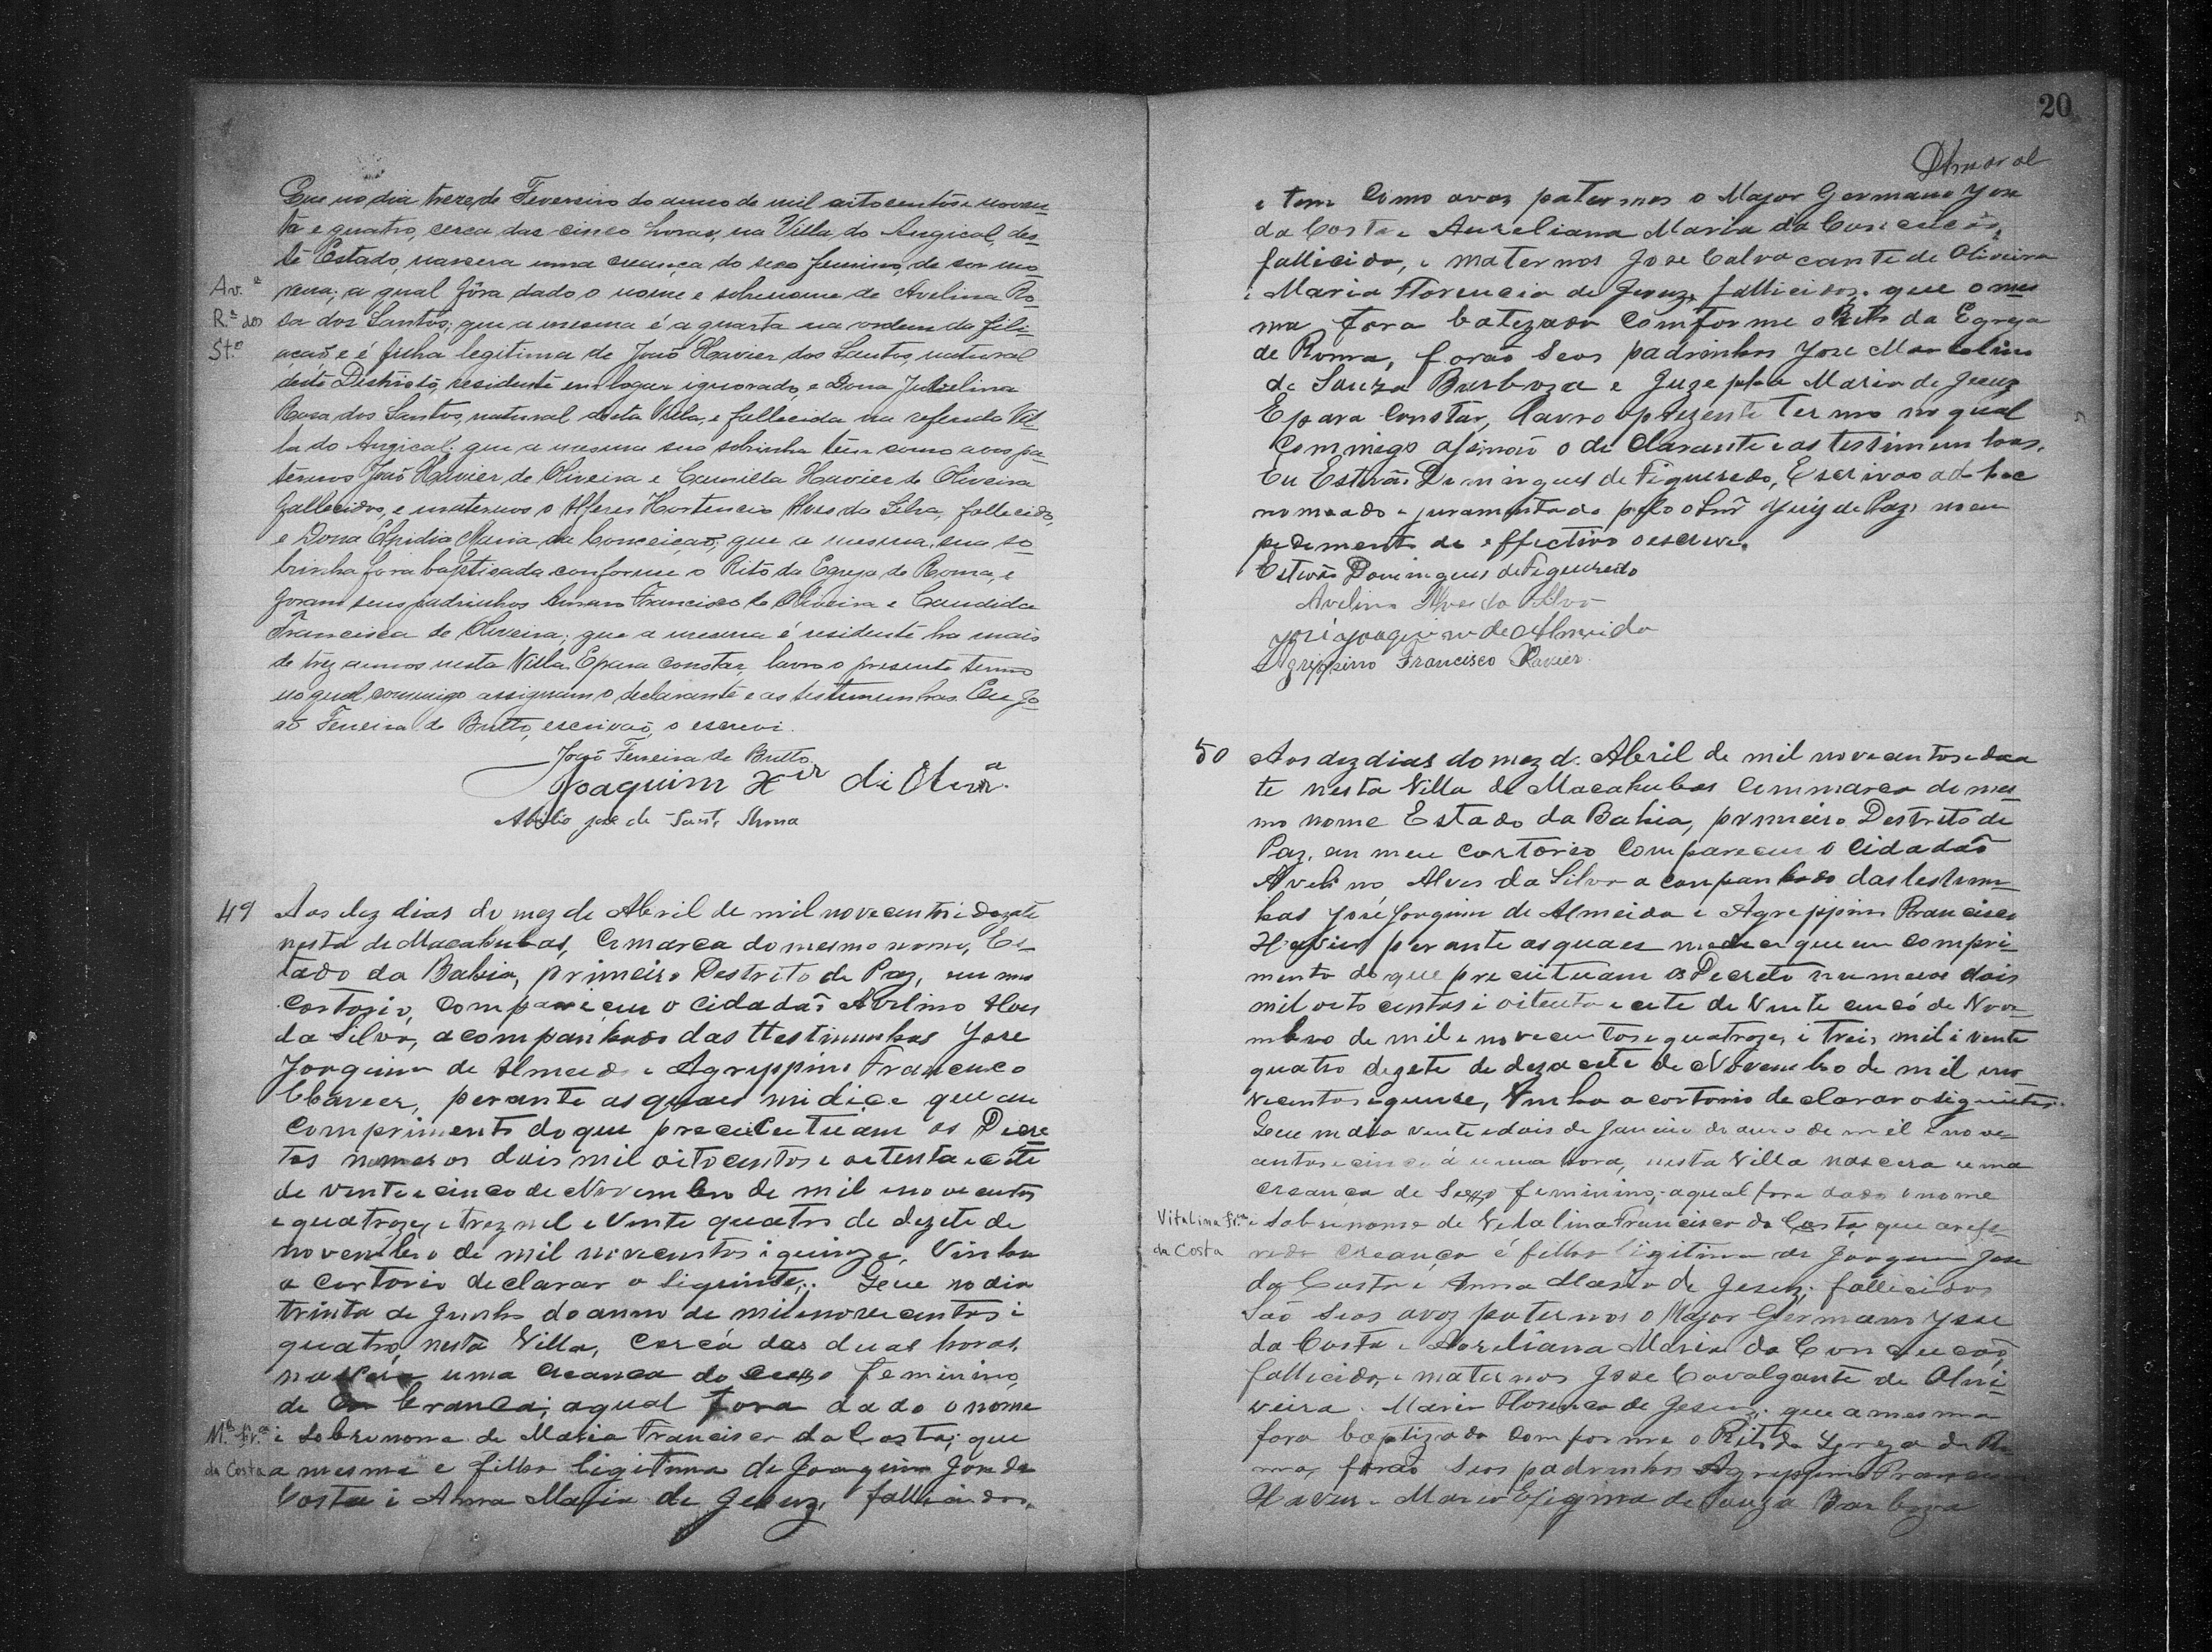 Que no dia treze de Fevereiro do anno de mil oitocentos e noven-
ta e quatro, cerca das cinco horas, na Villa do Angical, des-
te Estado, nascera uma creança do sexo feminino, de cor mo-
rena; a qual fôra dado o nome e sobrenome de Avelina Ro-
sa dos Santos; que a mesma é a quarta na ordem da fili-
ação e é filha legitima de João Xavier dos Santos, natural
deste Districto, residente em logar ignorado, e Dona Jubelina
Rosa dos Santos, natural desta Villa, e fallecida na referida Vil-
la do Angical: que a mesma sua sobrinha tem como avos pa-
ternos João Xavier de Oliveira e Camilla Xavier de Oliveira
fallecidos, e maternos o Alferes Hortencio Alves da Silva, fallecido,
e Dona Elpidia Maria da Conceição, que a mesma sua so-
brinha fora baptisada conforme o Rito da Egreja de Roma, e
foram seus padrinhos Amaro Francisco de Oliveira e Candida
Francisca de Oliveira; que a mesma é residente ha mais
de trez annos nesta Villa. E para constar, lavro o presente termo
no qual commigo assignam o declarante e as testimunhas. Eu Jo-
ão Ferreira de Britto, escrivão, o escrevi.
João Ferreira de Britto
Joaquim Xer de Olivra
Abilio José de Sant' Anna
Av.a
R.a dos
St.o
49 Aos dez dias do mez de Abril de mil novecentos e dezate
nesta de Macahubas, Comarca do mesmo nome, Es-
tado da Bahia, primeiro Destrito de Paz, em meu
Cortorio, compareceu o cidadão Avelino Alves
da Silva, acompanhado das ttestimunhas Jose
Joaquim de Almeida e Agryppino Francisco
Chavier, perante as quaes mi dice que em
Comprimento do que preceituam os Decre
tos numeros dois mil oitocentos e oitenta e cete
de vinte e cinco de Novembro de mil e novecentos
e quatroze, e trez mil e vinte quatro de dezete de
novembro de mil novecentos e quinze, Vinha
a Cartorio declarar o siguinte: Que no dia
trinta de Junho do anno de mil e novecentos e
quatro, nesta Villa, cerca das duas horas,
nascera uma creanca do cexo feminino,
de Cor branca; aqual fora dado o nome
M.a Fr.ca e sobrenome de Maria Francisca da Costa; que
da Costa a mesma e filha ligitima de Joaquim Jose da
Costa e Anna Maria de Jesuz, fallecidos,
20
Amaral
e tem como avoz paternos o Major Germano Jose
da Costa e Aureliana Maria da Conceição,
fallicido, e maternos Jose Calvacante de Oliveira
e Maria Florencia de Jesuz, fallicidos, que o mes
ma fora batezada comforme o Rito da Egreja
de Roma, forão seos padrinhos Jose Marcolino
de Souza Barboza e Maria de Jesuz
E para constar, lavro o prezente termo no qual
Commigo asinão o declarante e as testimunhas.
Eu Estevão Domingues de Figueredo, Escrivão ad hoc
nomeado e juramentado pelo o Snr Juiz de Paz, no em
pedimento do effectivo o escrevi.
Estevão Domingues de Figueredo
Avelino Alves da Silva
José Joaquim de Almeida
Agrippino Francisco Xavier.
50 Aos dez dias do mez de Abril de mil novecentos e deza
te nesta Villa de Macahubas Commarca do mes-
mo nome Estado da Bahia, primeiro Destrito de
Paz, em meu cortorio compareceu o cidadão
Avelino Alves da Silva acompanhado das testimu-
has José Joaquim de Almeida e Agreppino Francisco
Xavier perante as quaes me dice que em compri-
mento do que preceituam os Decreto numeros dois
mil oito centos e oitenta e cete de Vinte cinco de Nove-
mbro de mil e novecentos e quatroze, e Treis mil e vente
quatro dezete de dezacete de Novembro de mil e no-
vecentos e quinze, Vinha a cortorio declarar o siguinte:
Que no dia vinte e dois de Janeiro do anno de mil e nove-
centos e cinco á uma hora, nesta Villa nascera uma
creança de Sexo feminino, aqual fora dado o nome
Vitalina Fr.ca e sobrenome de Vitalina Francisca da Costa, que a refe-
da Costa rida creança é filha ligitima de Joaquim Jose
da Costa e Anna Maria de Jesuz; fallicidos
São seos avoz paternos o Major Germano Jose
da Costa e Aoreliana Maria da Conceicão,
fallicido, e maternos Jose Cavalgante de Olivi-
veira e Maria Florencia de Jesuz; que a mesma
fora baptizada comforme o Rito da Igreja de Ro
ma, forão seos padrinhos Agreppino Francisco
Xavier e Maria Efigina de Souza Barboza